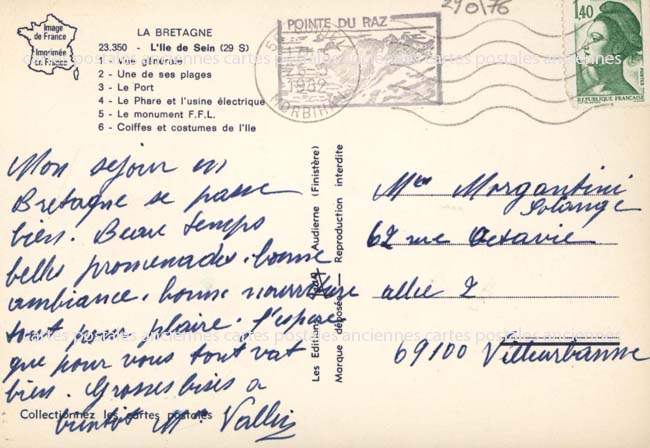 Image
de France
Imprimée
en France
LA BRETAGNE
23.350 - L'Ile de Sein (29 S)
1 - Vue générale
2 - Une de ses plages
3 - Le Port
4 - Le Phare et l'usine électrique
5 - Le monument F.F.L.
6 - Coiffes et costumes de l'Ile
POINTE DU RAZ
1982
MORBIHAN
290/76
1,40
POSTES
REPUBLIQUE FRANÇAISE
Mon séjour en
Bretagne se passe
bien. Beau temps
belles promenades. bonne
ambiance. bonne nourriture
tout pour plaire. J'espère
que pour vous tout vat
bien. Grosses bises a
bientôt Me Vallin
Collectionnez les cartes postales
Les Editions Audierne (Finistère)
Marque déposée — Reproduction interdite
Morgantini
Solange
62 rue Octavie
allée 2
69100 Villeurbanne
cartes postales anciennes cartes postales anciennes cartes postales anciennes